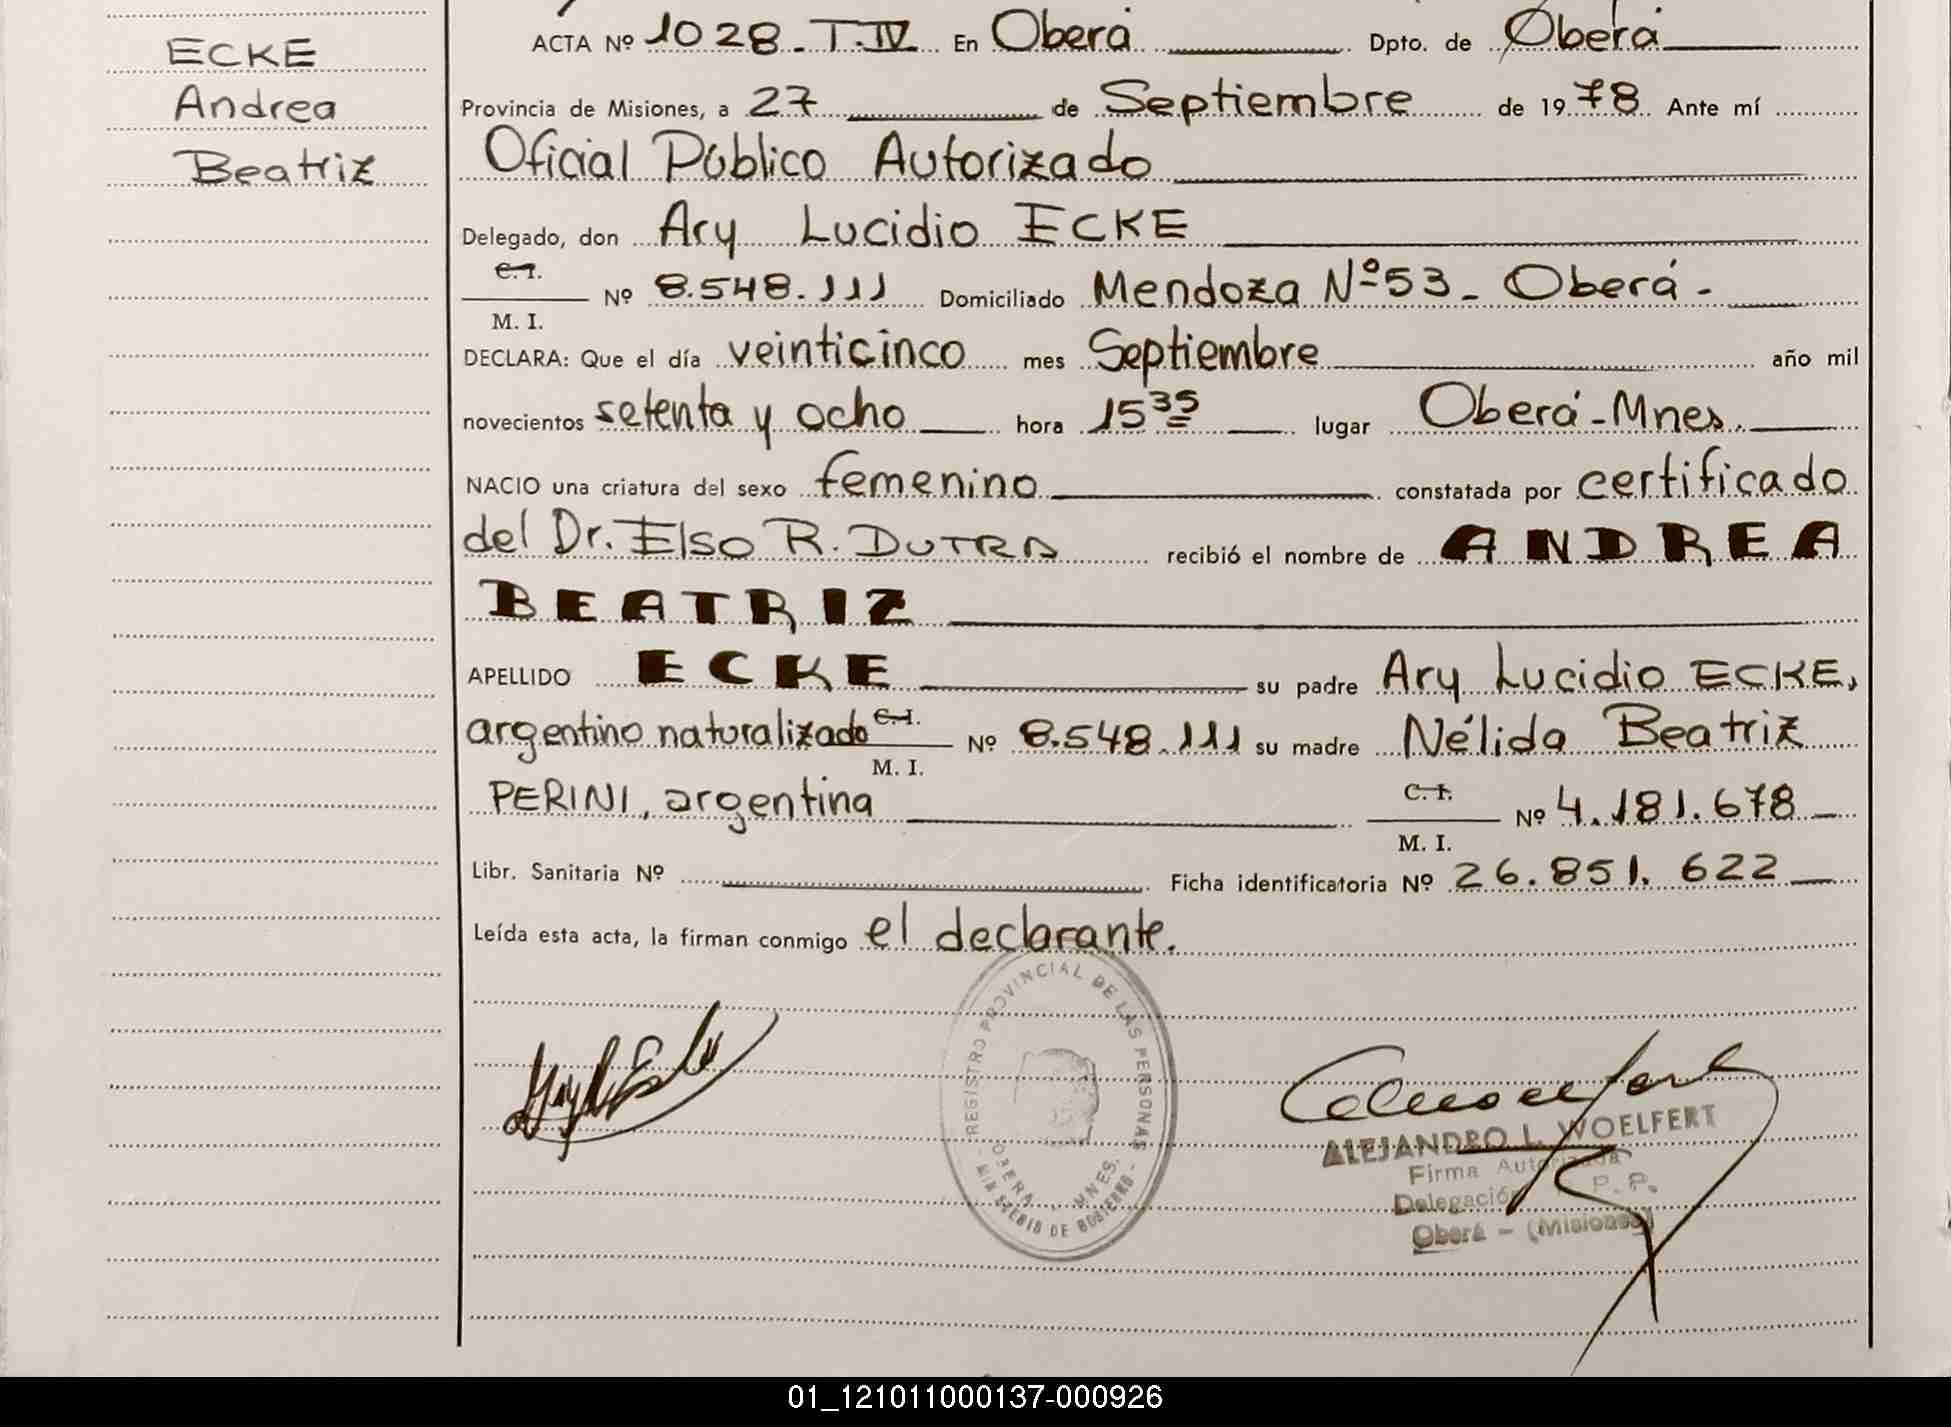 ECKE
Andrea
Beatriz
ACTA Nº 1028 - T.IV En Oberá Dpto. de Oberá
Provincia de Misiones, a 27 de Septiembre de 1978 Ante mí
Oficial Público Autorizado
Delegado, don Ary Lucidio ECKE
C.I.
M. I. Nº 8.548.111 Domiciliado Mendoza Nº 53 - Oberá -
DECLARA: Que el día veinticinco mes Septiembre año mil
novecientos setenta y ocho hora 15 35 lugar Oberá - Mnes.
NACIO una criatura del sexo femenino constatada por certificado
del Dr. Elso R. DUTRA recibió el nombre de ANDREA
BEATRIZ
APELLIDO ECKE su padre Ary Lucidio ECKE,
argentino naturalizado C.I. M. I. Nº 8.548.111 su madre Nélida Beatriz
PERINI, argentina C. I. M. I. Nº 4.181.678
Libr. Sanitaria Nº Ficha identificatoria Nº 26.851.622
Leída esta acta, la firman conmigo el declarante.
REGISTRO PROVINCIAL DE LAS PERSONAS
OBERA - MNES.
MINISTERIO DE GOBIERNO
ALEJANDRO L. WOELFERT
Firma Autorizada
Delegación R. P. P.
Oberá - (Misiones)
01_121011000137-000926